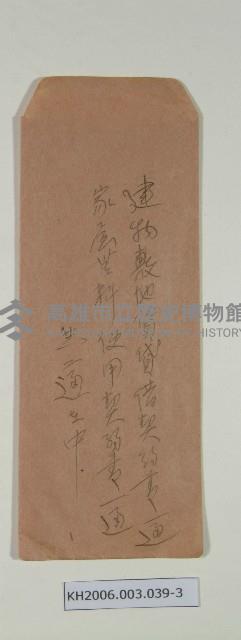 建物敷地賃貸借契約書一通
家屋無料使用契約書一通
共二通之中
高雄市立歷史博物館
HISTORY
KH2006.003.039-3